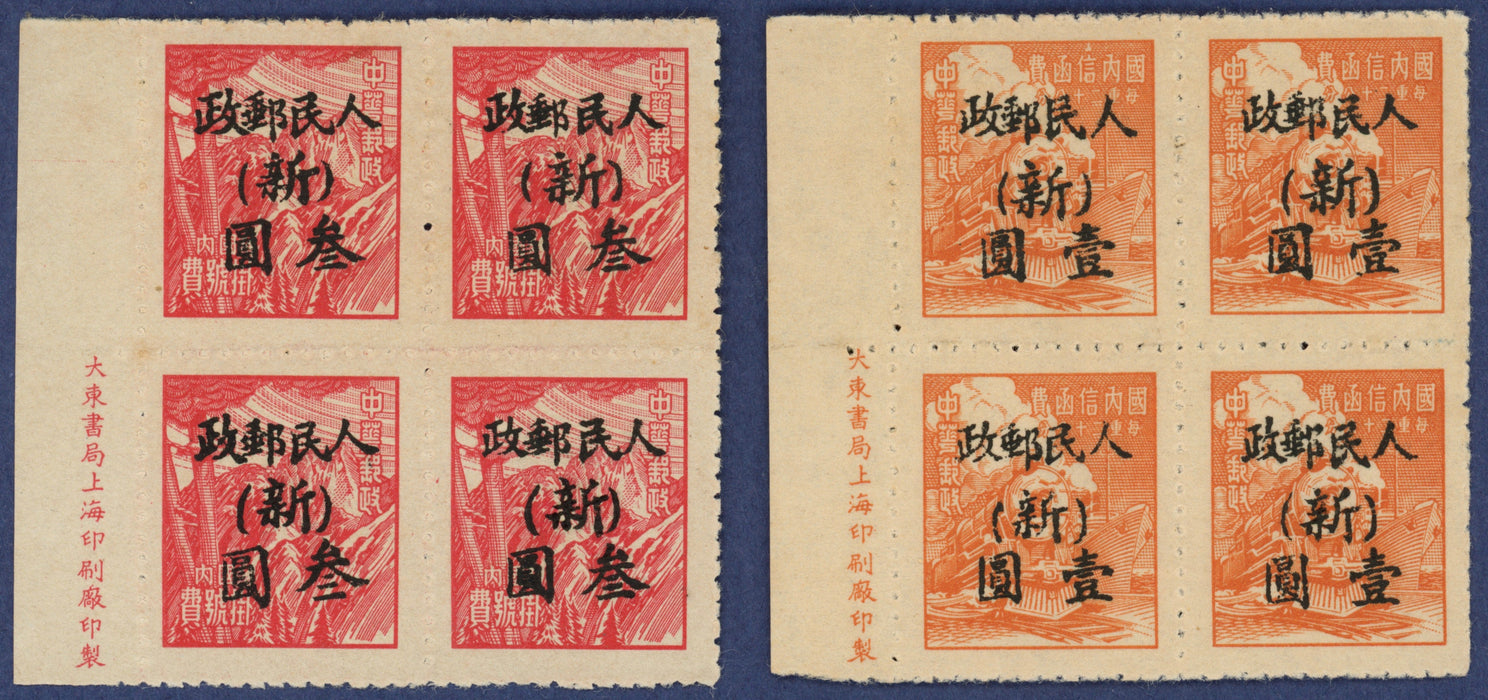 中華郵政
人民郵政
(新)
叁圓
內
掛號費
中華郵政
人民郵政
(新)
叁圓
內
掛號費
中華郵政
人民郵政
(新)
叁圓
內
掛號費
中華郵政
人民郵政
(新)
叁圓
內
掛號費
大東書局上海印刷廠印製
國內信函費
每重
中華郵政
人民郵政
(新)
壹圓
國內信函費
每重
中華郵政
人民郵政
(新)
壹圓
國內信函費
每重
中華郵政
人民郵政
(新)
壹圓
國內信函費
每重
中華郵政
人民郵政
(新)
壹圓
大東書局上海印刷廠印製